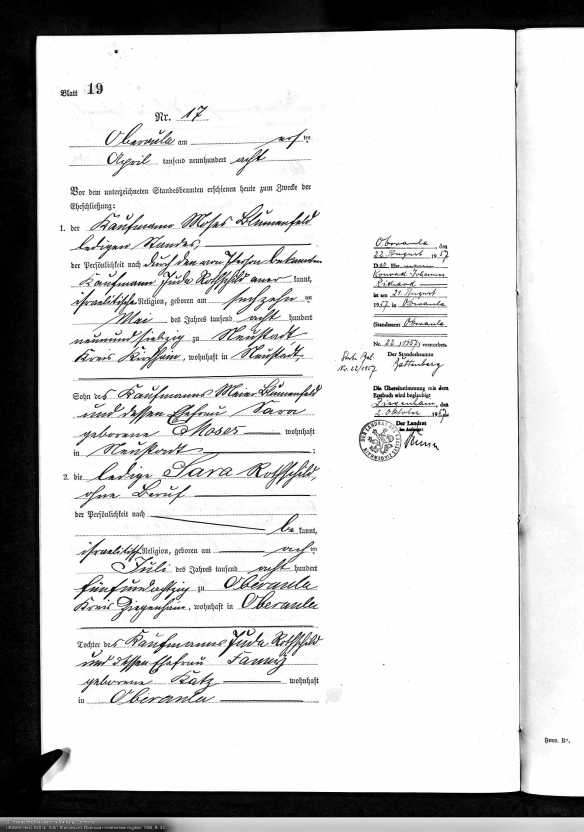 Blatt 19
Nr. 17
Oberaula am ersten
April tausend neunhundert acht
Vor dem unterzeichneten Standesbeamten erschienen heute zum Zwecke der
Eheschließung:
1. der Kaufmann Moses Blumenfeld
ledigen Standes,
der Persönlichkeit nach durch den von Person bekannten
Kaufmann Juda Rothschild anerkannt,
israelitische Religion, geboren am sechzehnten
Mai des Jahres tausend acht hundert
neunundsiebzig zu Neustadt
Kreis Kirchhain, wohnhaft in Neustadt,
Sohn des Kaufmanns Meier Blumenfeld
und dessen Ehefrau Sara
geborene Moses wohnhaft
in Neustadt ;
2. die ledige Sara Rothschild,
ohne Beruf
der Persönlichkeit nach
be kannt,
israelitische Religion, geboren am achten
Juli des Jahres tausend acht hundert
fünfundachtzig zu Oberaula
Kreis Ziegenhain, wohnhaft in Oberaula
Tochter des Kaufmanns Juda Rothschild
und dessen Ehefrau Fanny
geborene Katz wohnhaft
in Oberaula
Oberaula, den
22 August 1957
Konrad Johannes
Richard
ist am 21. August
1957 in Oberaula
(Standesamt Oberaula
Nr. 22/1957) verstorben.
Der Standesbeamte
Nr. 22/1957
Die Übereinstimmung mit dem
Erstbuch wird beglaubigt
Ziegenhain, den
2. Oktober 1957
Der Landrat
DER LANDRAT DES KREISES ZIEGENHAIN